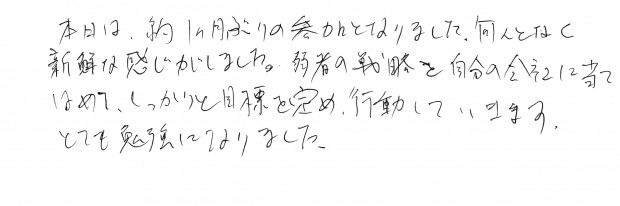 本日は、約1ヶ月ぶりの参加となりました。何んとなく
新鮮な感じがしました。弱者の戦略を自分の会社に当て
はめて、しっかりと目標を定め、行動していきます。
とても勉強になりました。